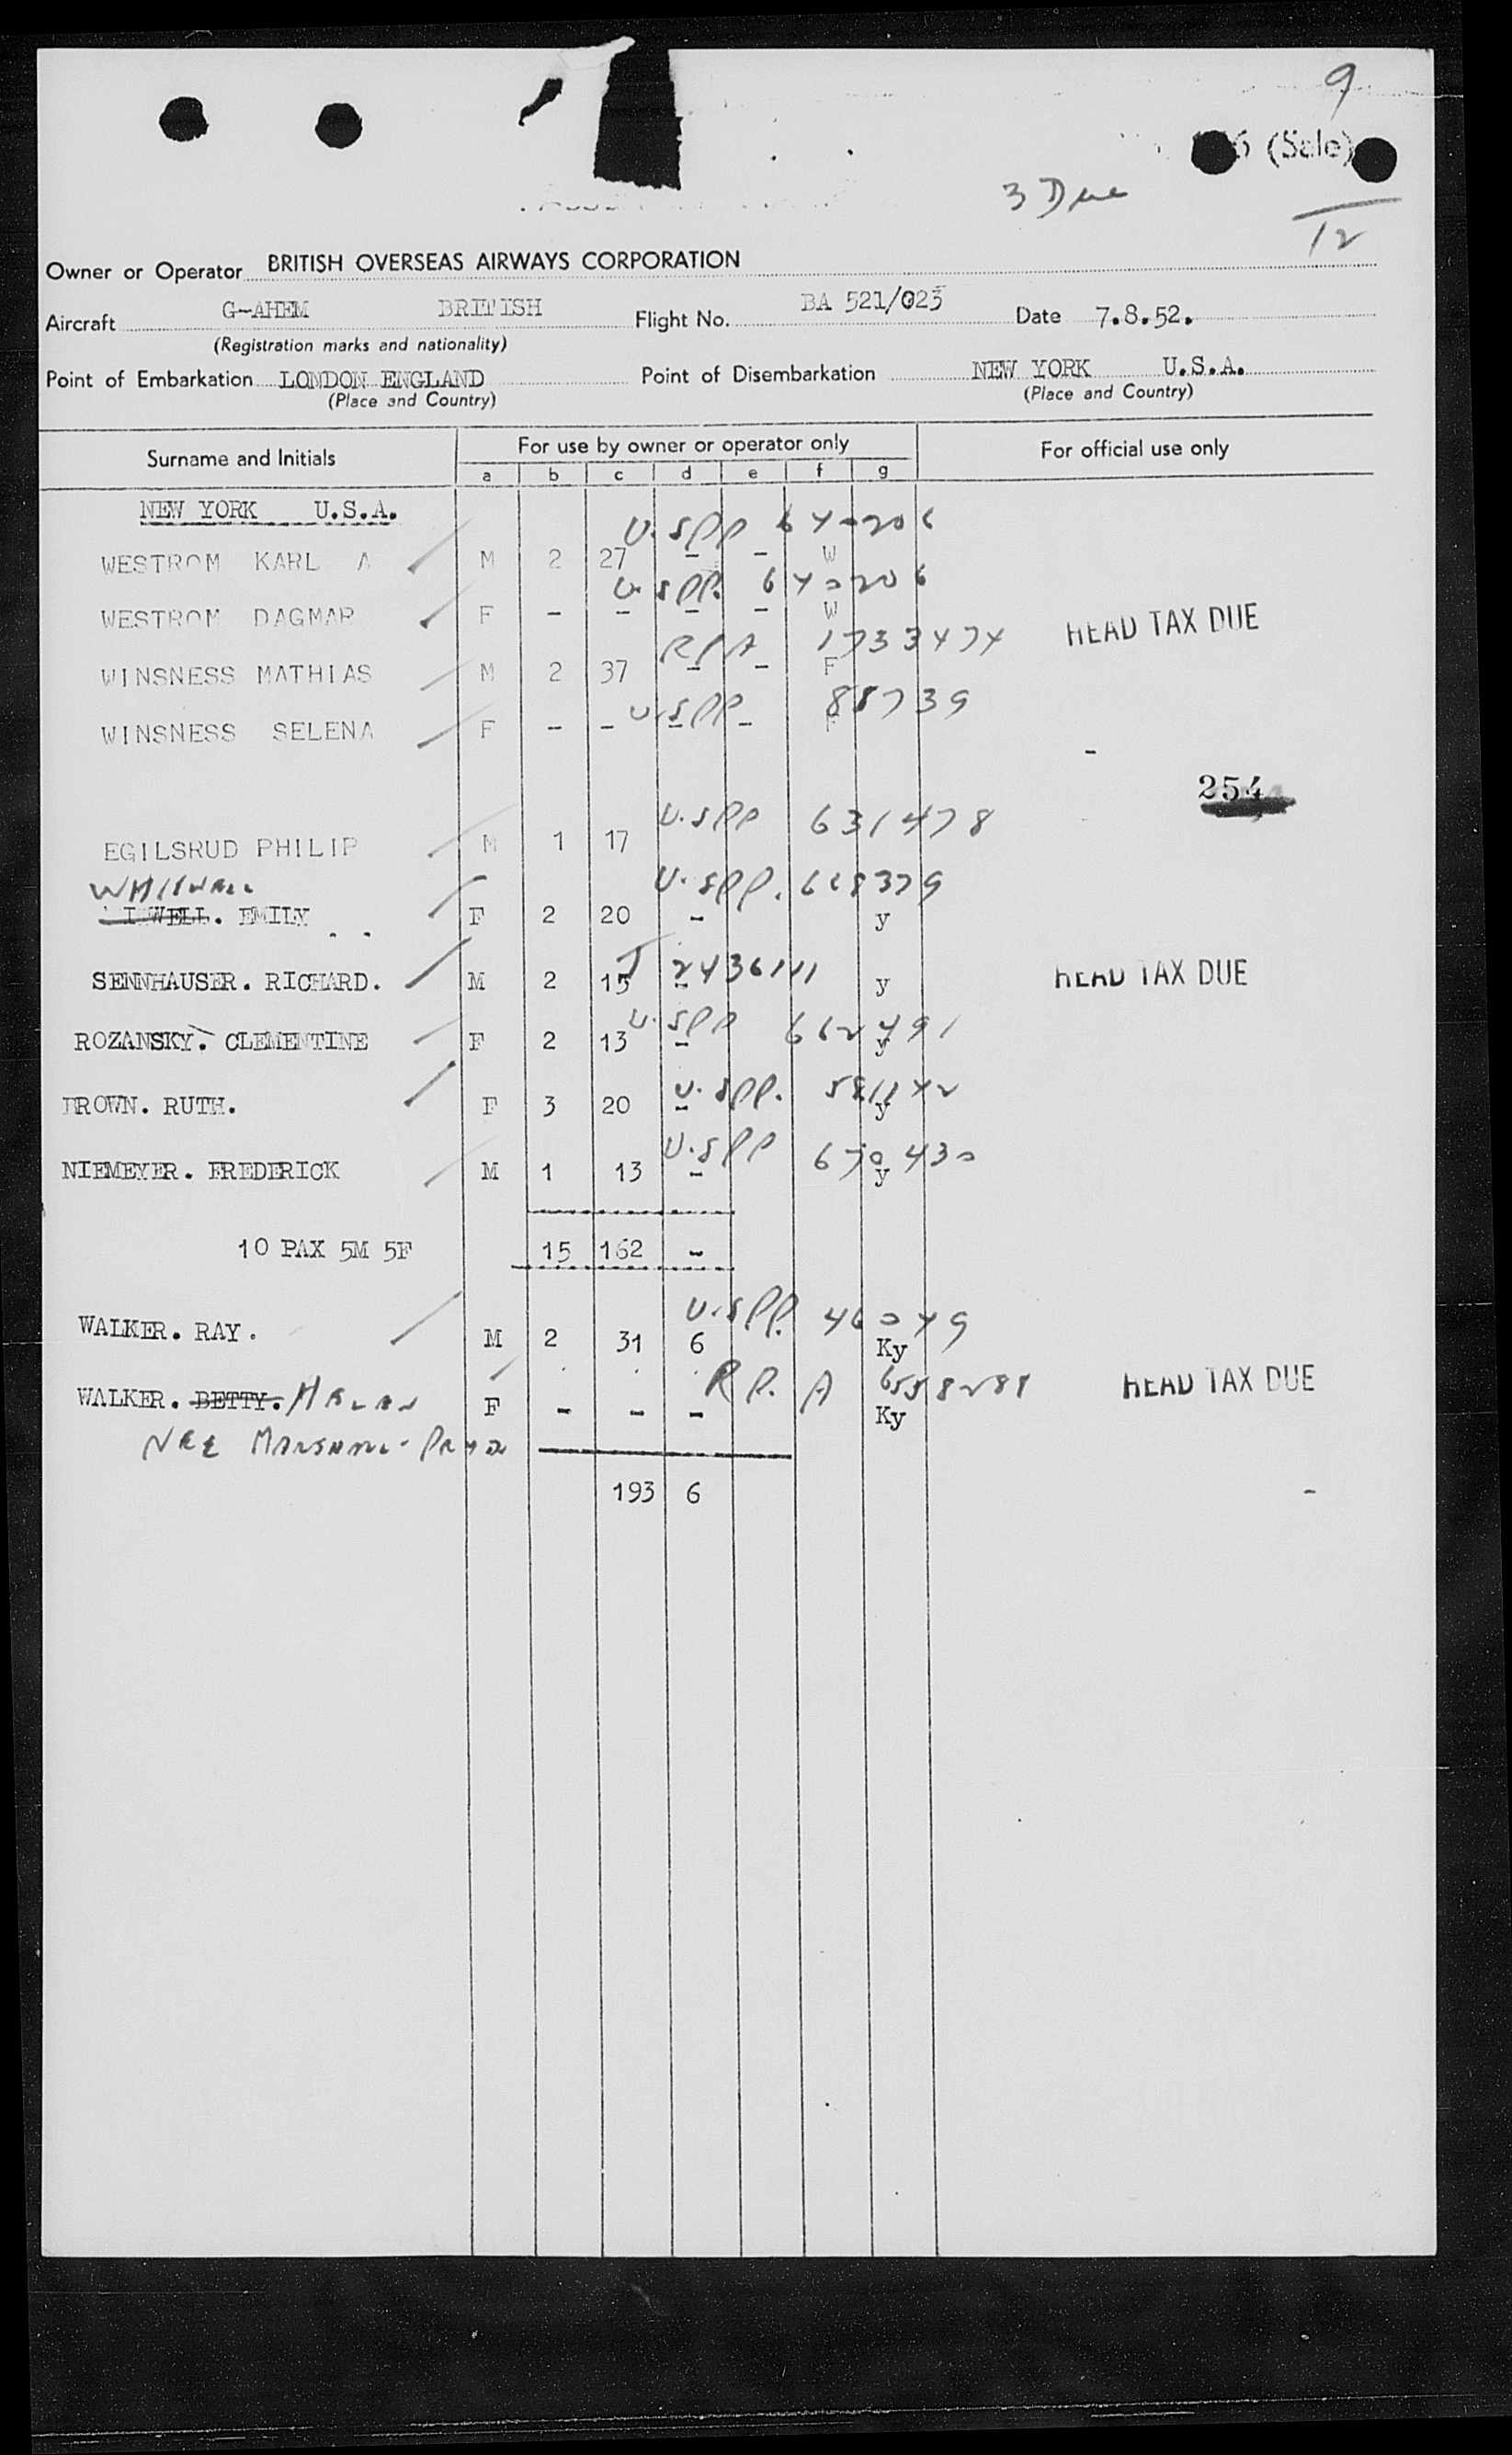 9
6 (Sale)
3 Due
12
Owner or Operator BRITISH OVERSEAS AIRWAYS CORPORATION
Aircraft G-AHEM BRITISH Flight No. BA 521/023 Date 7.8.52.
(Registration marks and nationality)
Point of Embarkation LONDON ENGLAND Point of Disembarkation NEW YORK U.S.A.
(Place and Country) (Place and Country)
Surname and Initials For use by owner or operator only For official use only
a b c d e f g
NEW YORK U.S.A.
U.S PP 640206
WESTROM KARL A M 2 27 - - W
U.S PP. 640206
WESTROM DAGMAR F - - - - W
HEAD TAX DUE
RPA 1733474
WINSNESS MATHIAS M 2 37 - - F
U.S PP 88739
WINSNESS SELENA F - - - - F
254
U.S PP 631478
EGILSRUD PHILIP M 1 17
U.S PP. 628379
I WELL. EMILY F 2 20 - y
2436111
SENNHAUSER. RICHARD. M 2 15 - y HEAD TAX DUE
U.S PP 662491
ROZANSKY. CLEMENTINE F 2 13 - y
U.S PP. 581142
BROWN. RUTH. F 3 20 - y
U.S PP 670430
NIEMEYER. FREDERICK M 1 13 - y
10 PAX 5M 5F 15 162 -
U.S PP. 46049
WALKER. RAY. M 2 31 6 Ky
R P. A 6558288 HEAD TAX DUE
WALKER. BETTY. F - - - Ky
NEE
193 6